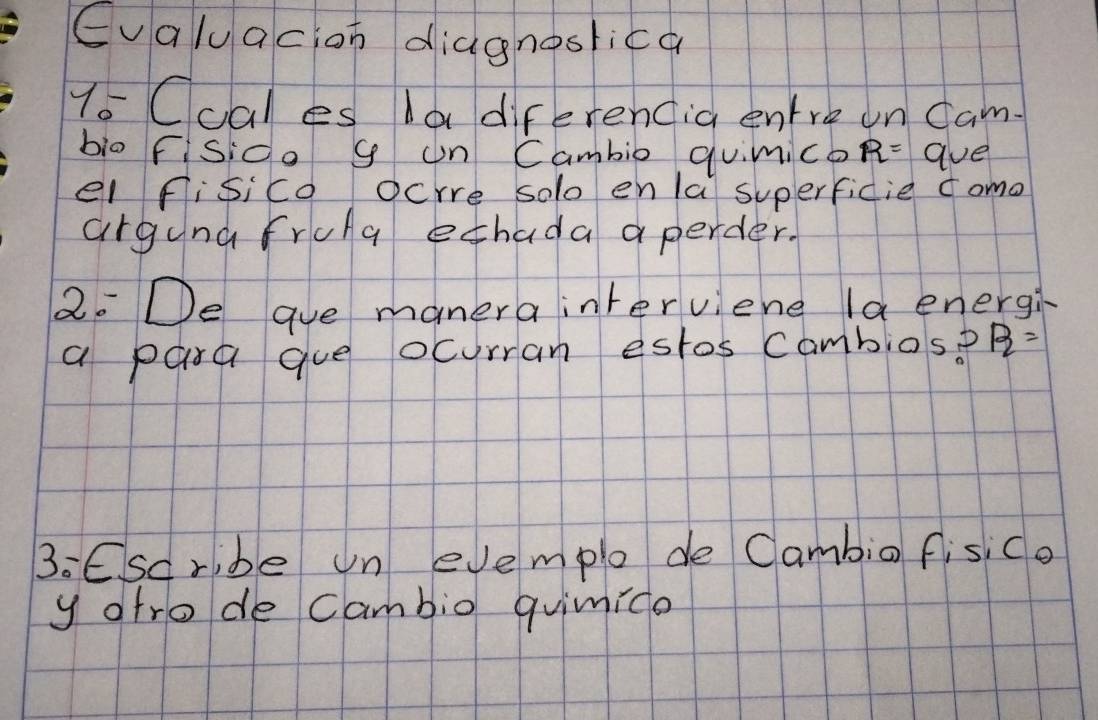 Evaluación diagnostica
1.- Cual es la diferencia entre un Cam-
bio Fisico y un Cambio quimico R= que
el fisico ocrre solo en la superficie como
arguna fruta echada a perder.
2.- De que manera interviene la energi-
a para que ocurran estos Cambios? R=
3.- Escribe un evemplo de Cambio fisico
y otro de cambio quimico